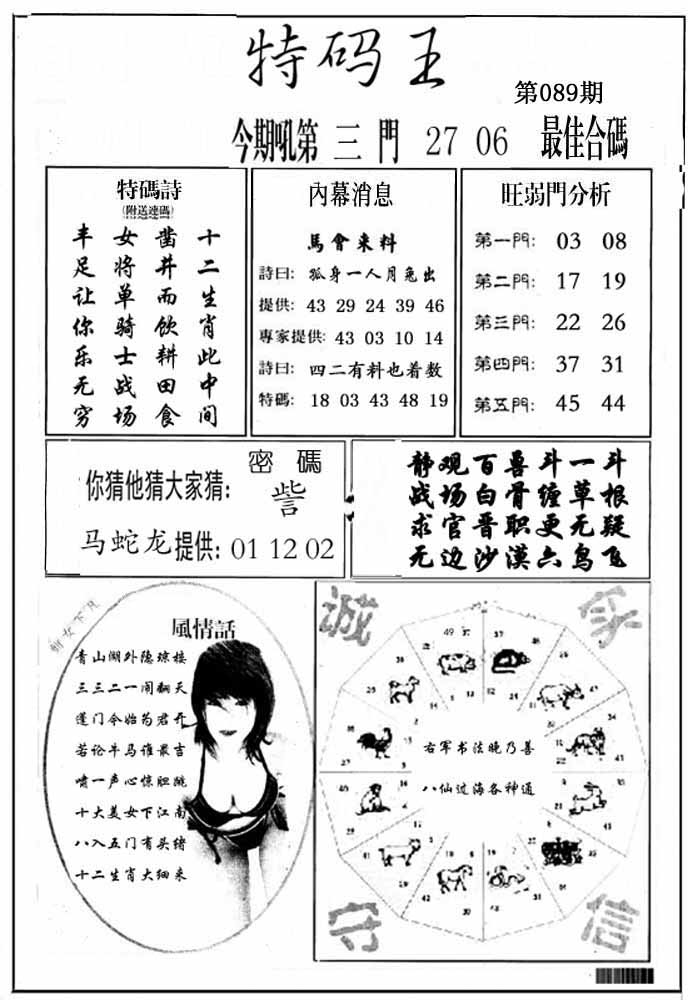 特码王
第089期
今期吼第 三 門 27 06 最佳合碼
特碼詩
(附送連碼)
十二生肖此中间
凿井而飲耕田食
女将单骑士战场
丰足让你乐无穷
內幕消息
馬會来料
詩曰: 孤身一人月兔出
提供: 43 29 24 39 46
專家提供: 43 03 10 14
詩曰: 四二有料也着数
特碼: 18 03 43 48 19
旺弱門分析
第一門: 03 08
第二門: 17 19
第三門: 22 26
第四門: 37 31
第五門: 45 44
密 碼
你猜他猜大家猜: 訾
马蛇龙提供: 01 12 02
静观百喜斗一斗
战场白骨缠草根
求官晋职更无疑
无边沙漠六鸟飞
女下凡
風情話
青山 外隐 楼
三三二一闹翻天
蓬门今始为君开
若论牛马谁最吉
啸一声心惊胆跳
十大美女下江南
八入五门有头绪
十二生肖大细来
诚
守
信
右军书法晚乃善
八仙过海各神通